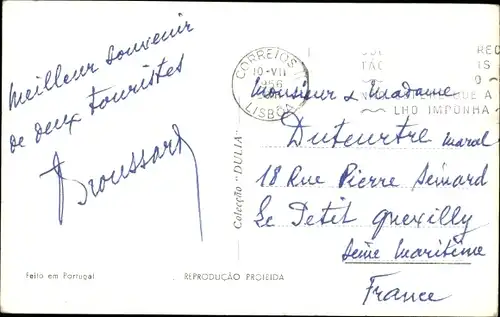 Meilleur souvenir
de deux touristes
Broussard
CORREIOS
10-VII
LISBOA
LHO IMPONHA
Monsieur & Madame
Duteurtre Marcel
18 Rue Pierre Semard
Le Petit Quevilly
Seine Maritime
France
Colecção "DULIA"
Feito em Portugal
REPRODUÇÃO PROIBIDA